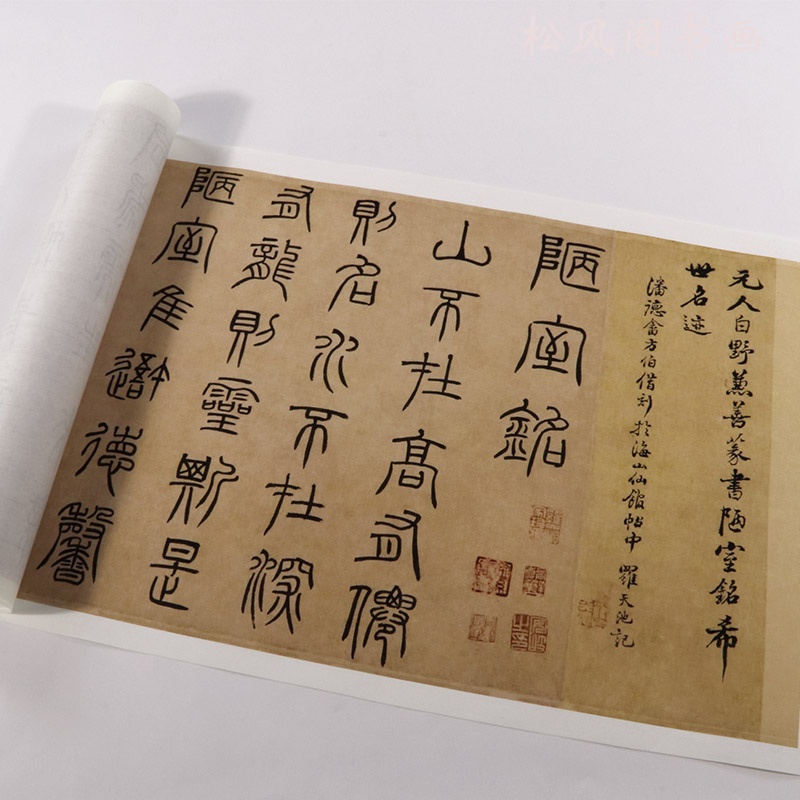 松风阁书画
元人白野兼善篆書陋室銘希
世名迹
潘德畬方伯借刻於海山仙館帖中 羅天池記
陋室銘
山不在高有僊
則名水不在深
有龍則靈斯是
陋室隹吾德馨